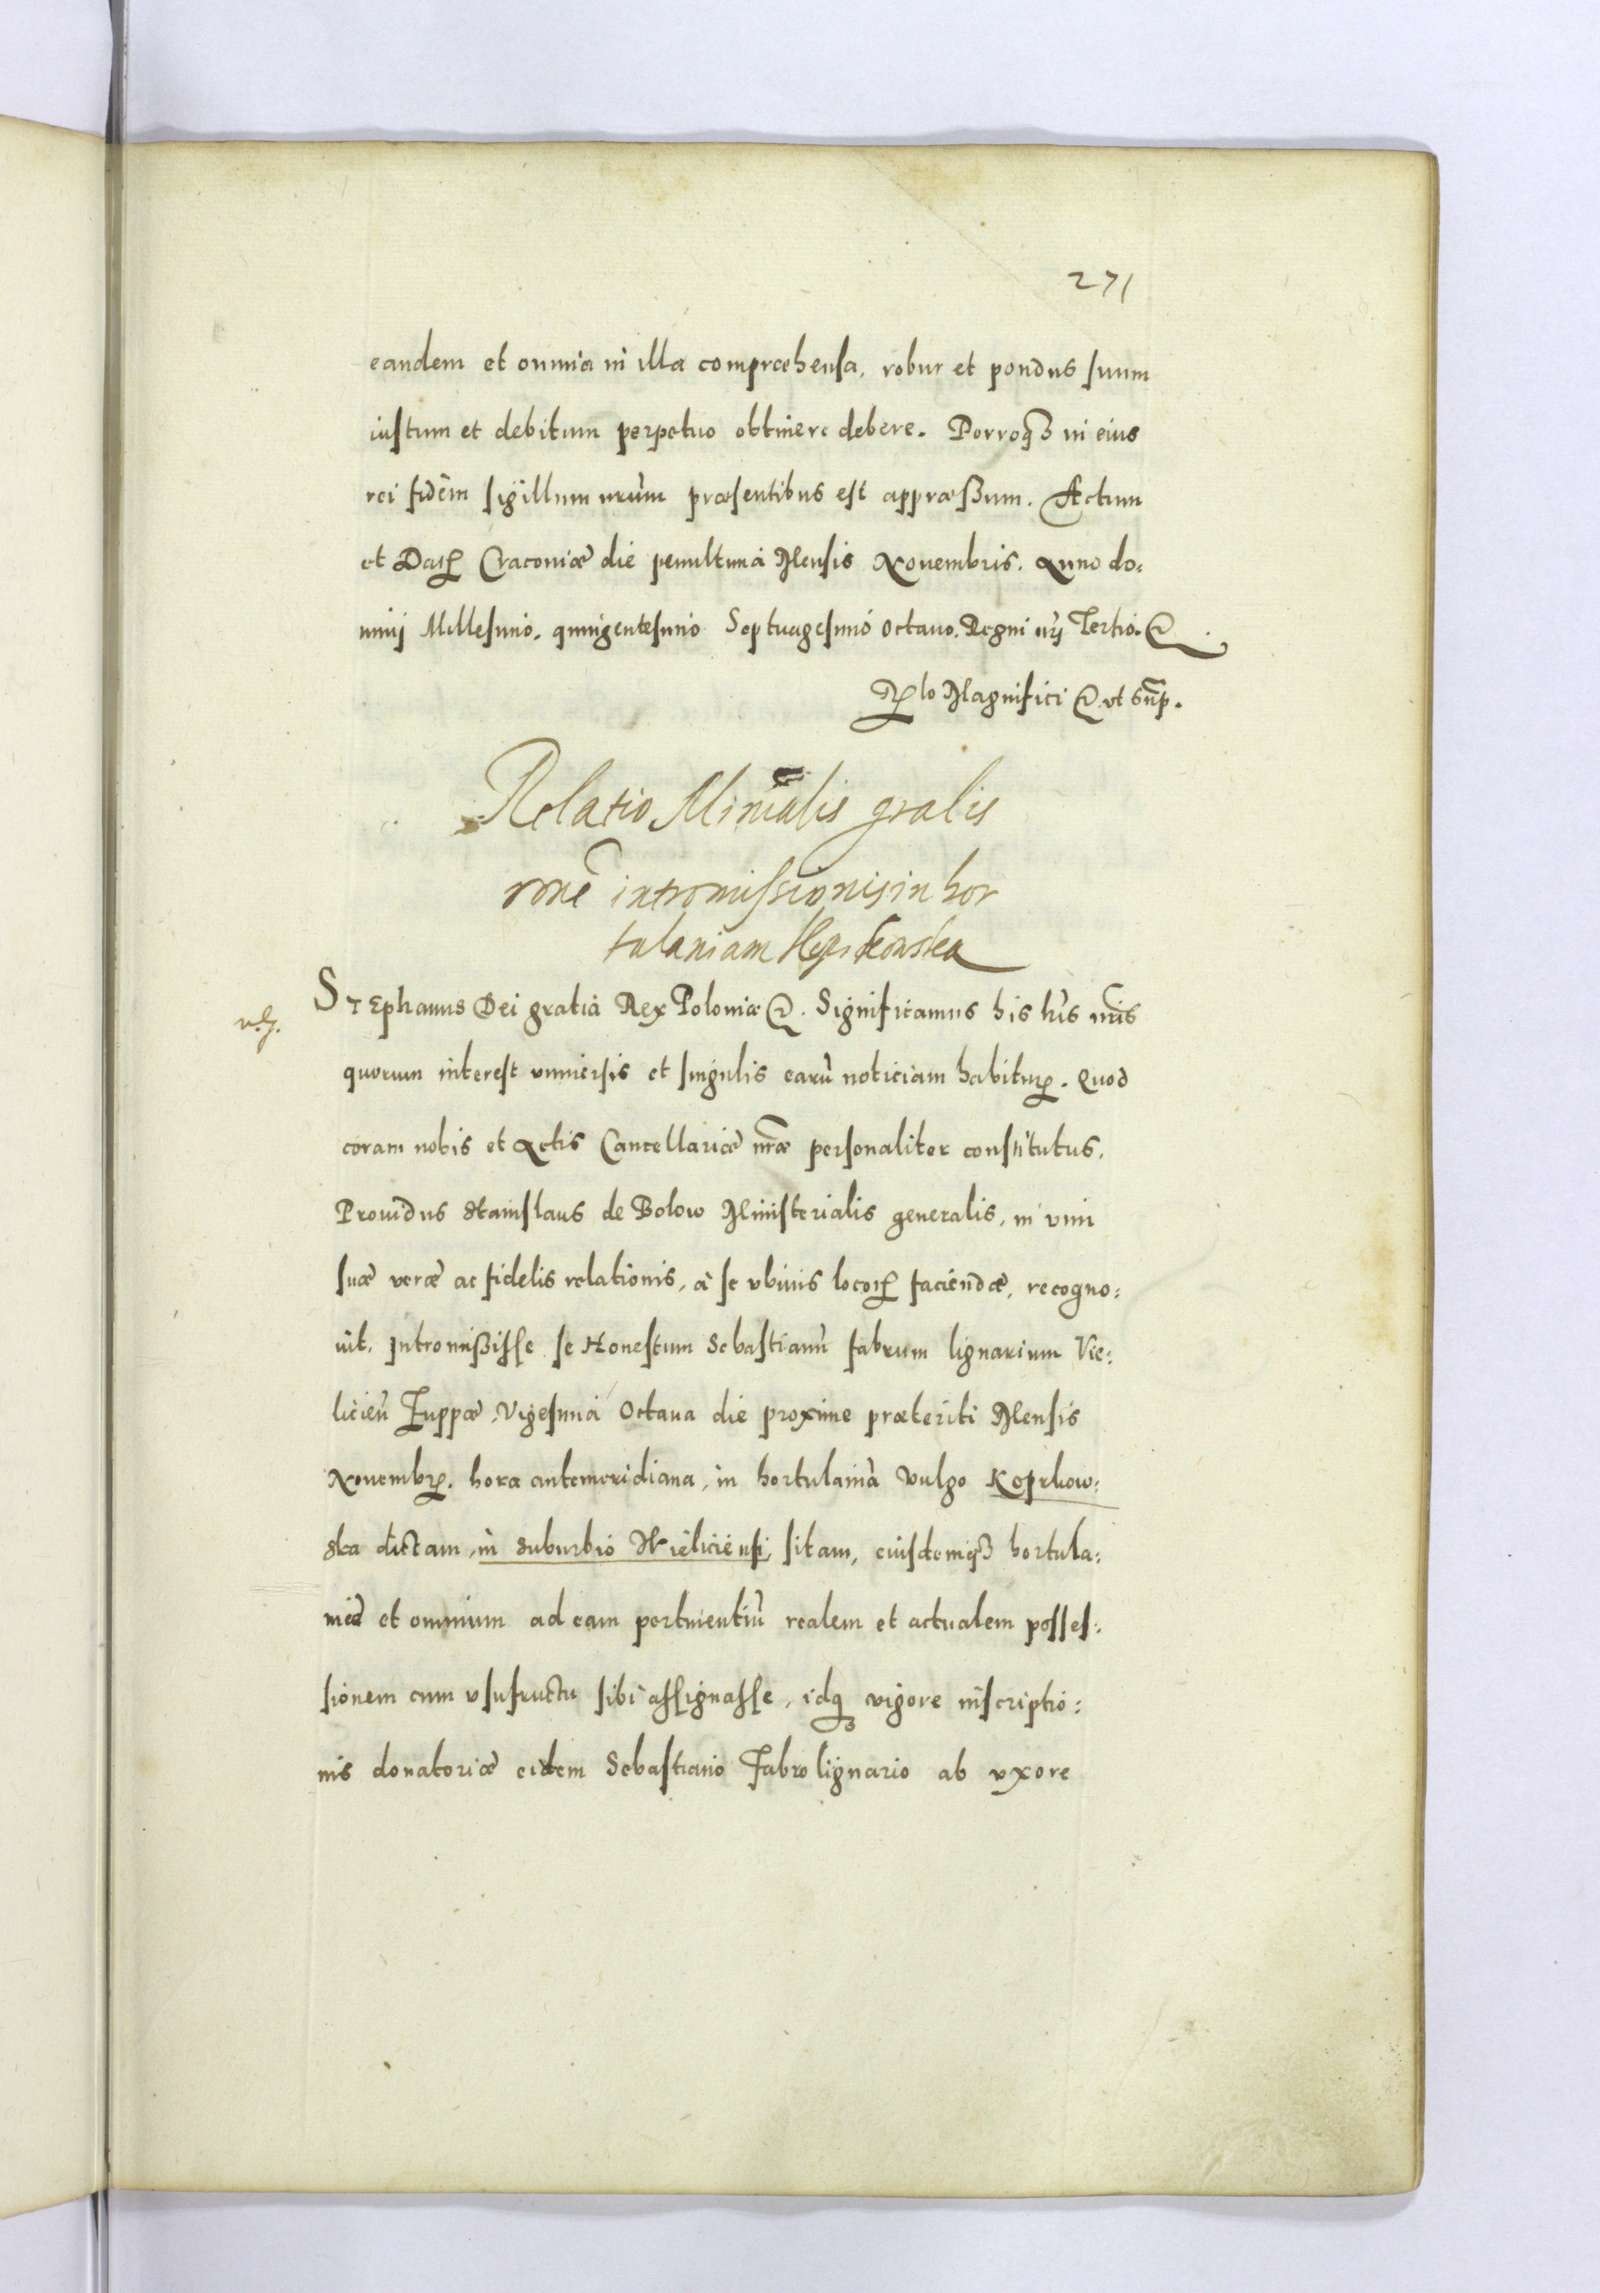 271
eandem et omnia in illa compræhensa, robur et pondus suum
iustum et debitum perpetuo obtinere debere. Porroqȝ in eius
rei fidem sigillum nrũm præsentibus est appræssum. Actum
et Datꝝ Cracoviæ die penultima Mensis Novembris. Anno do:
minij Millesimo. quingentesimo Septuagesimo octavo. Regni nrĩ Tertio. &c
Rlo Magnifici &c. ut sup.
Relatio Minialis gralis
rone intromissionis in hor
tulaniam
n. g.
Stephanus Dei gratia Rex Poloniæ &c. Significamus his lris nris
quorum interest universis et singulis earũ noticiam habiturꝝ. Quod
coram nobis et Actis Cancellariæ nræ personaliter constitutus.
Providus Stanislaus de Bolow Ministerialis generalis, in vim
suæ veræ ac fidelis relationis, à se ubivis locorꝝ faciendæ, recogno:
vit. Intromississe se Honestum Sebastianũ fabrum lignarium Vie:
licieñ Zuppæ, Vigesima Octava die proxime præteriti Mensis
Novembrꝝ. hora antemeridiana, in hortulaniã vulgo Koprkow:
ska dictam, in suburbio Wieliciensi, sitam, eiusdemqȝ hortula:
niæ et omnium ad eam pertinentiũ realem et actualem posses:
sionem cum usufructu sibi assignasse, idqȝ vigore inscriptio:
nis donatoriæ eidem Sebastiano Fabro lignario ab uxore